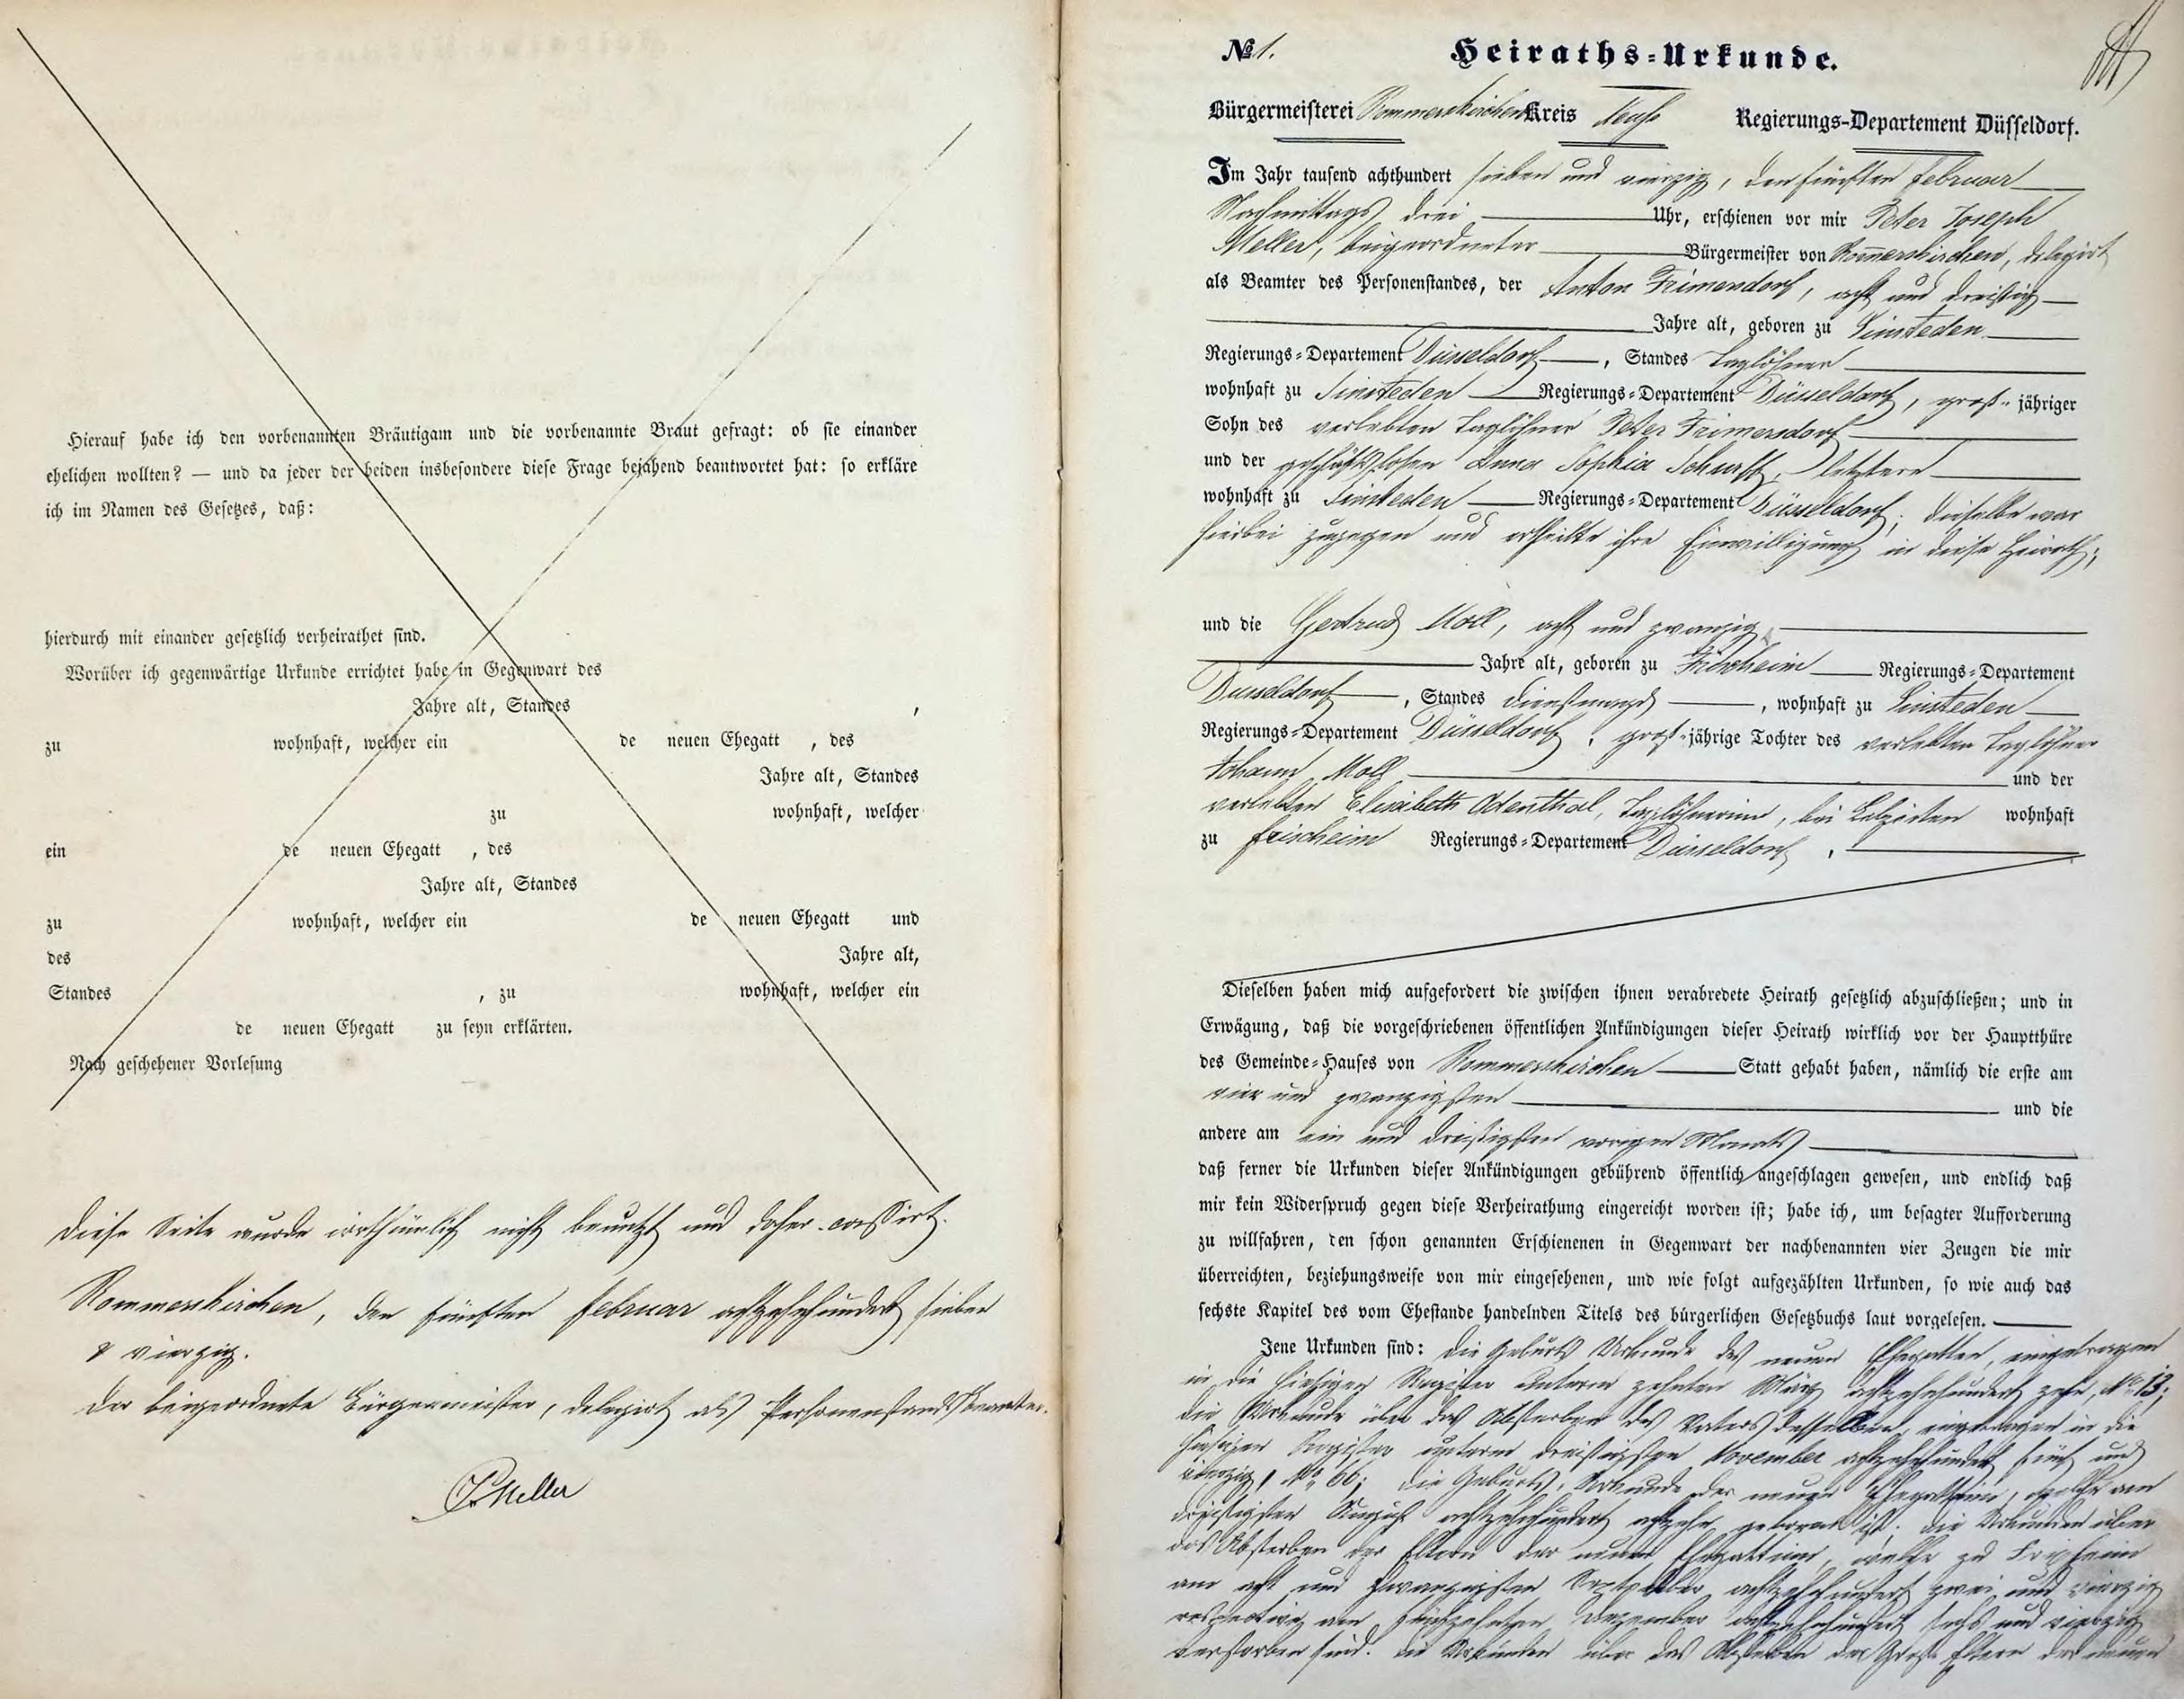 Hierauf habe ich den vorbenannten Bräutigam und die vorbenannte Braut gefragt: ob sie einander
ehelichen wollten? — und da jeder der beiden insbesondere diese Frage bejahend beantwortet hat: so erkläre
ich im Namen des Gesetzes, daß:
hierdurch mit einander gesetzlich verheirathet sind.
Worüber ich gegenwärtige Urkunde errichtet habe in Gegenwart des
Jahre alt, Standes ,
zu wohnhaft, welcher ein de neuen Ehegatt , des
Jahre alt, Standes
zu wohnhaft, welcher
ein de neuen Ehegatt , des
Jahre alt, Standes
zu wohnhaft, welcher ein de neuen Ehegatt und
des Jahre alt,
Standes , zu wohnhaft, welcher ein
de neuen Ehegatt zu seyn erklärten.
Nach geschehener Vorlesung
Diese Seite wurde irrthümlich nicht benutzt und daher cassirt.
Rommerskirchen, den fünften Februar achtzehnhundert sieben
& vierzig.
Der beigeordnete Bürgermeister, delegirt als Personenstandsbeamter.
Meller
№ 1. Heiraths-Urkunde.
Bürgermeisterei Rommerskirchen Kreis Neuß Regierungs-Departement Düsseldorf.
Im Jahr tausend achthundert sieben und vierzig, den fünften Februar
Nachmittags drei Uhr, erschienen vor mir Peter Joseph
Meller, beigeordneter Bürgermeister von Rommerskirchen, delegirt
als Beamter des Personenstandes, der Anton Frimersdorf, acht und dreißig
Jahre alt, geboren zu Sinsteden
Regierungs-Departement Düsseldorf, Standes Taglöhner
wohnhaft zu Sinsteden Regierungs-Departement Düsseldorf, groß-jähriger
Sohn des verlebten Taglöhner Peter Frimersdorf
und der geschäftslosen Anna Sophia letztere
wohnhaft zu Sinsteden Regierungs-Departement Düsseldorf; dieselbe war
hierbei zugegen und ertheilte ihre Einwilligung in diese Heirath;
und die Gertrud Moll, acht und zwanzig
Jahre alt, geboren zu Frixheim Regierungs-Departement
Düsseldorf, Standes Dienstmagd, wohnhaft zu Sinsteden
Regierungs-Departement Düsseldorf, groß-jährige Tochter des verlebten Taglöhner
Johann Moll und der
verlebten Elisabeth Odenthal, Taglöhnerinn, bei Lebzeiten wohnhaft
zu Frixheim Regierungs-Departement Düsseldorf,
Dieselben haben mich aufgefordert die zwischen ihnen verabredete Heirath gesetzlich abzuschließen; und in
Erwägung, daß die vorgeschriebenen öffentlichen Ankündigungen dieser Heirath wirklich vor der Hauptthüre
des Gemeinde-Hauses von Rommerskirchen Statt gehabt haben, nämlich die erste am
vier und zwanzigsten und die
andere am ein und dreißigsten vorigen Monats
daß ferner die Urkunden dieser Ankündigungen gebührend öffentlich angeschlagen gewesen, und endlich daß
mir kein Widerspruch gegen diese Verheirathung eingereicht worden ist; habe ich, um besagter Aufforderung
zu willfahren, den schon genannten Erschienenen in Gegenwart der nachbenannten vier Zeugen die mir
überreichten, beziehungsweise von mir eingesehenen, und wie folgt aufgezählten Urkunden, so wie auch das
sechste Kapitel des vom Ehestande handelnden Titels des bürgerlichen Gesetzbuchs laut vorgelesen.
Jene Urkunden sind: die Geburts Urkunde des neuen Ehegatten, eingetragen
in die hiesigen Register unterm zehnten März achtzehnhundert zehn, № 13;
die Urkunde über das Absterben des Vaters desselben, eingetragen in die
hiesigen Register unterm dreißigsten November achtzehnhundert fünf und
vierzig, № 66; die Geburts Urkunde der neuen Ehegattinn, welche am
dreißigsten August achtzehnhundert achtzehn geboren ist; die Urkunden über
das Absterben der Eltern der neuen Ehegattinn, welche zu Frixheim
am acht und zwanzigsten September achtzehnhundert zwei und vierzig
respective am Dezember achtzehnhundert sechs und vierzig
verstorben sind. die Urkunden über das Absterben der Groß Eltern der neuen